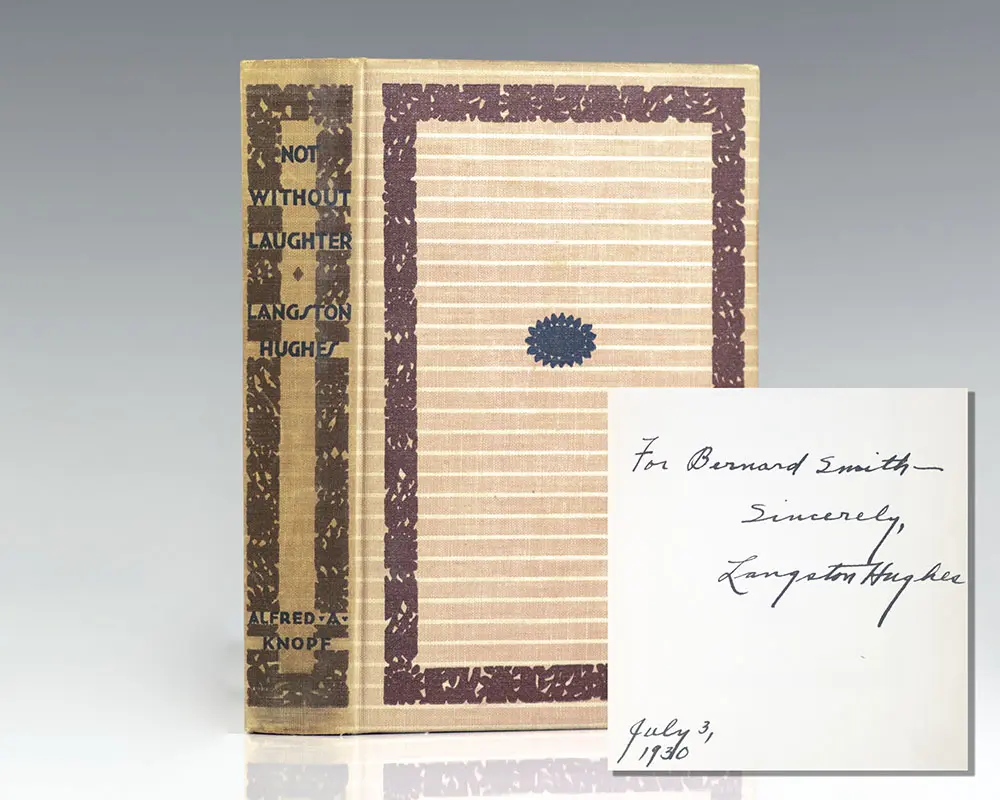 NOT
WITHOUT
LAUGHTER
LANGSTON
HUGHES
ALFRED·A·
KNOPF
For Bernard Smith—
Sincerely,
Langston Hughes
July 3,
1930